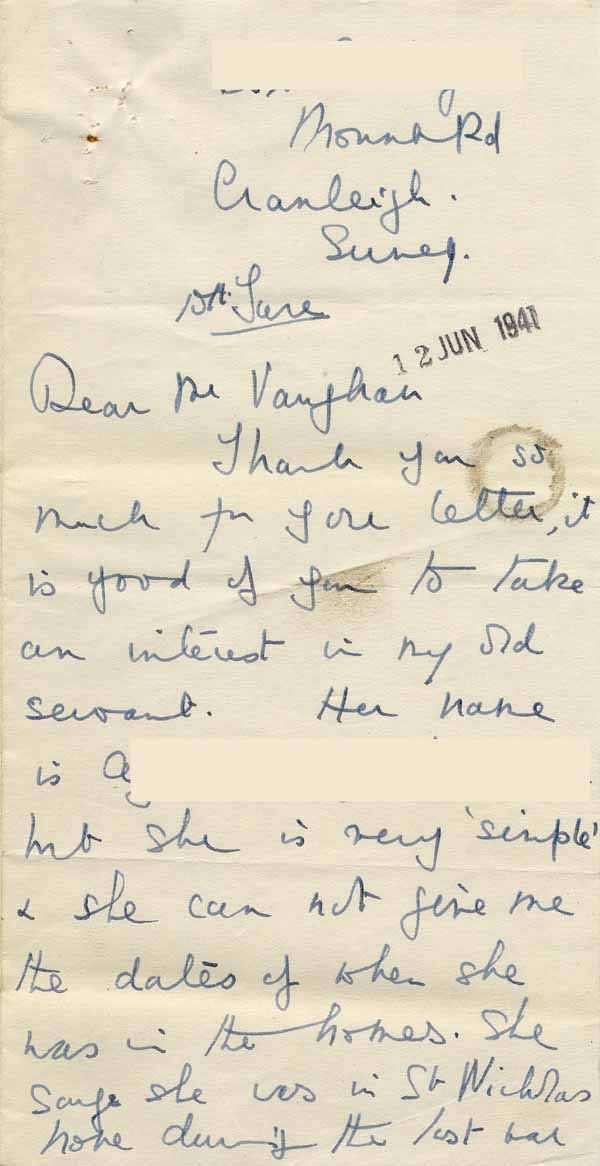 Mount Rd
Cranleigh.
Surrey.
June
12 JUN 1941
Dear Mr Vaughan
Thank you so
much for your letter, it
is good of you to take
an interest in my old
servant. Her name
is
but she is very 'simple'
& she can not give me
the dates of when she
was in the homes. She
says she was in St Nicholas
home during the last war